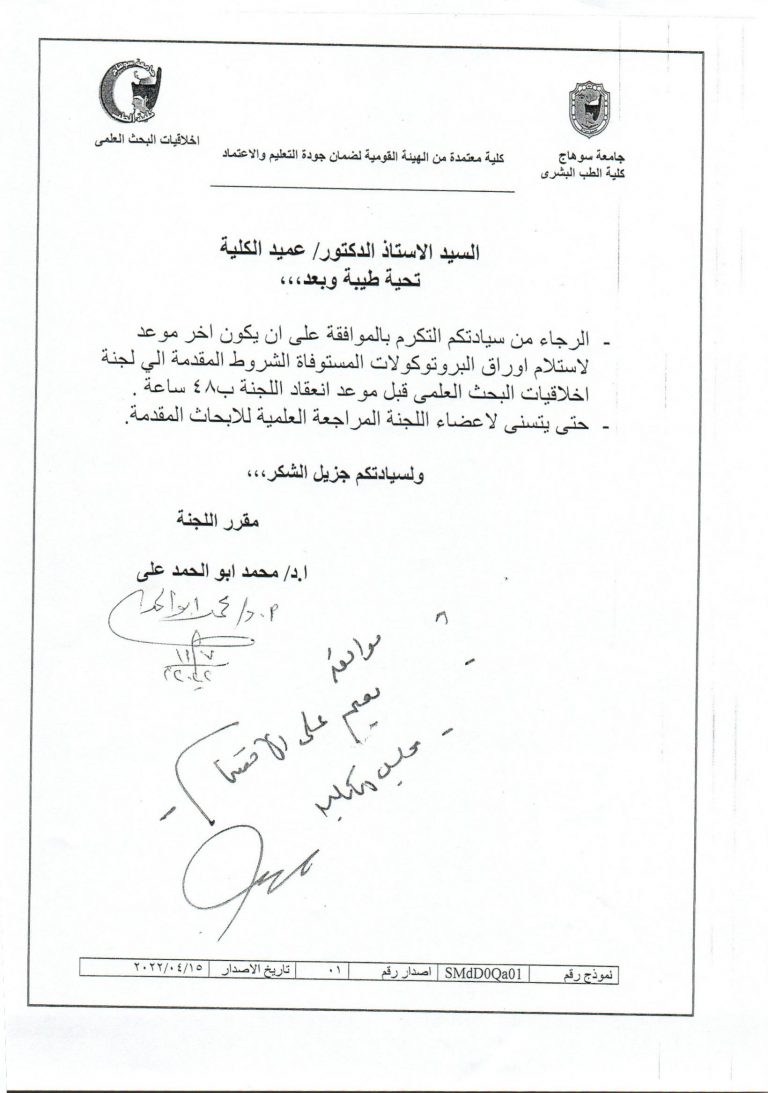 جامعة سوهاج
كلية الطب البشرى
كلية معتمدة من الهيئة القومية لضمان جودة التعليم والاعتماد
اخلاقيات البحث العلمى
السيد الاستاذ الدكتور/ عميد الكلية
تحية طيبة وبعد،،،
- الرجاء من سيادتكم التكرم بالموافقة على ان يكون اخر موعد
لاستلام اوراق البروتوكولات المستوفاة الشروط المقدمة الي لجنة
اخلاقيات البحث العلمى قبل موعد انعقاد اللجنة ب٤٨ ساعة .
- حتى يتسنى لاعضاء اللجنة المراجعة العلمية للابحاث المقدمة.
ولسيادتكم جزيل الشكر،،،
مقرر اللجنة
ا.د/ محمد ابو الحمد على
ا.د/ محمد ابو الحمد
موافقة
يعمم على الاقسام
مجلس الكلية
نموذج رقم SMdD0Qa01 اصدار رقم ٠١ تاريخ الاصدار ٢٠٢٢/٠٤/١٥